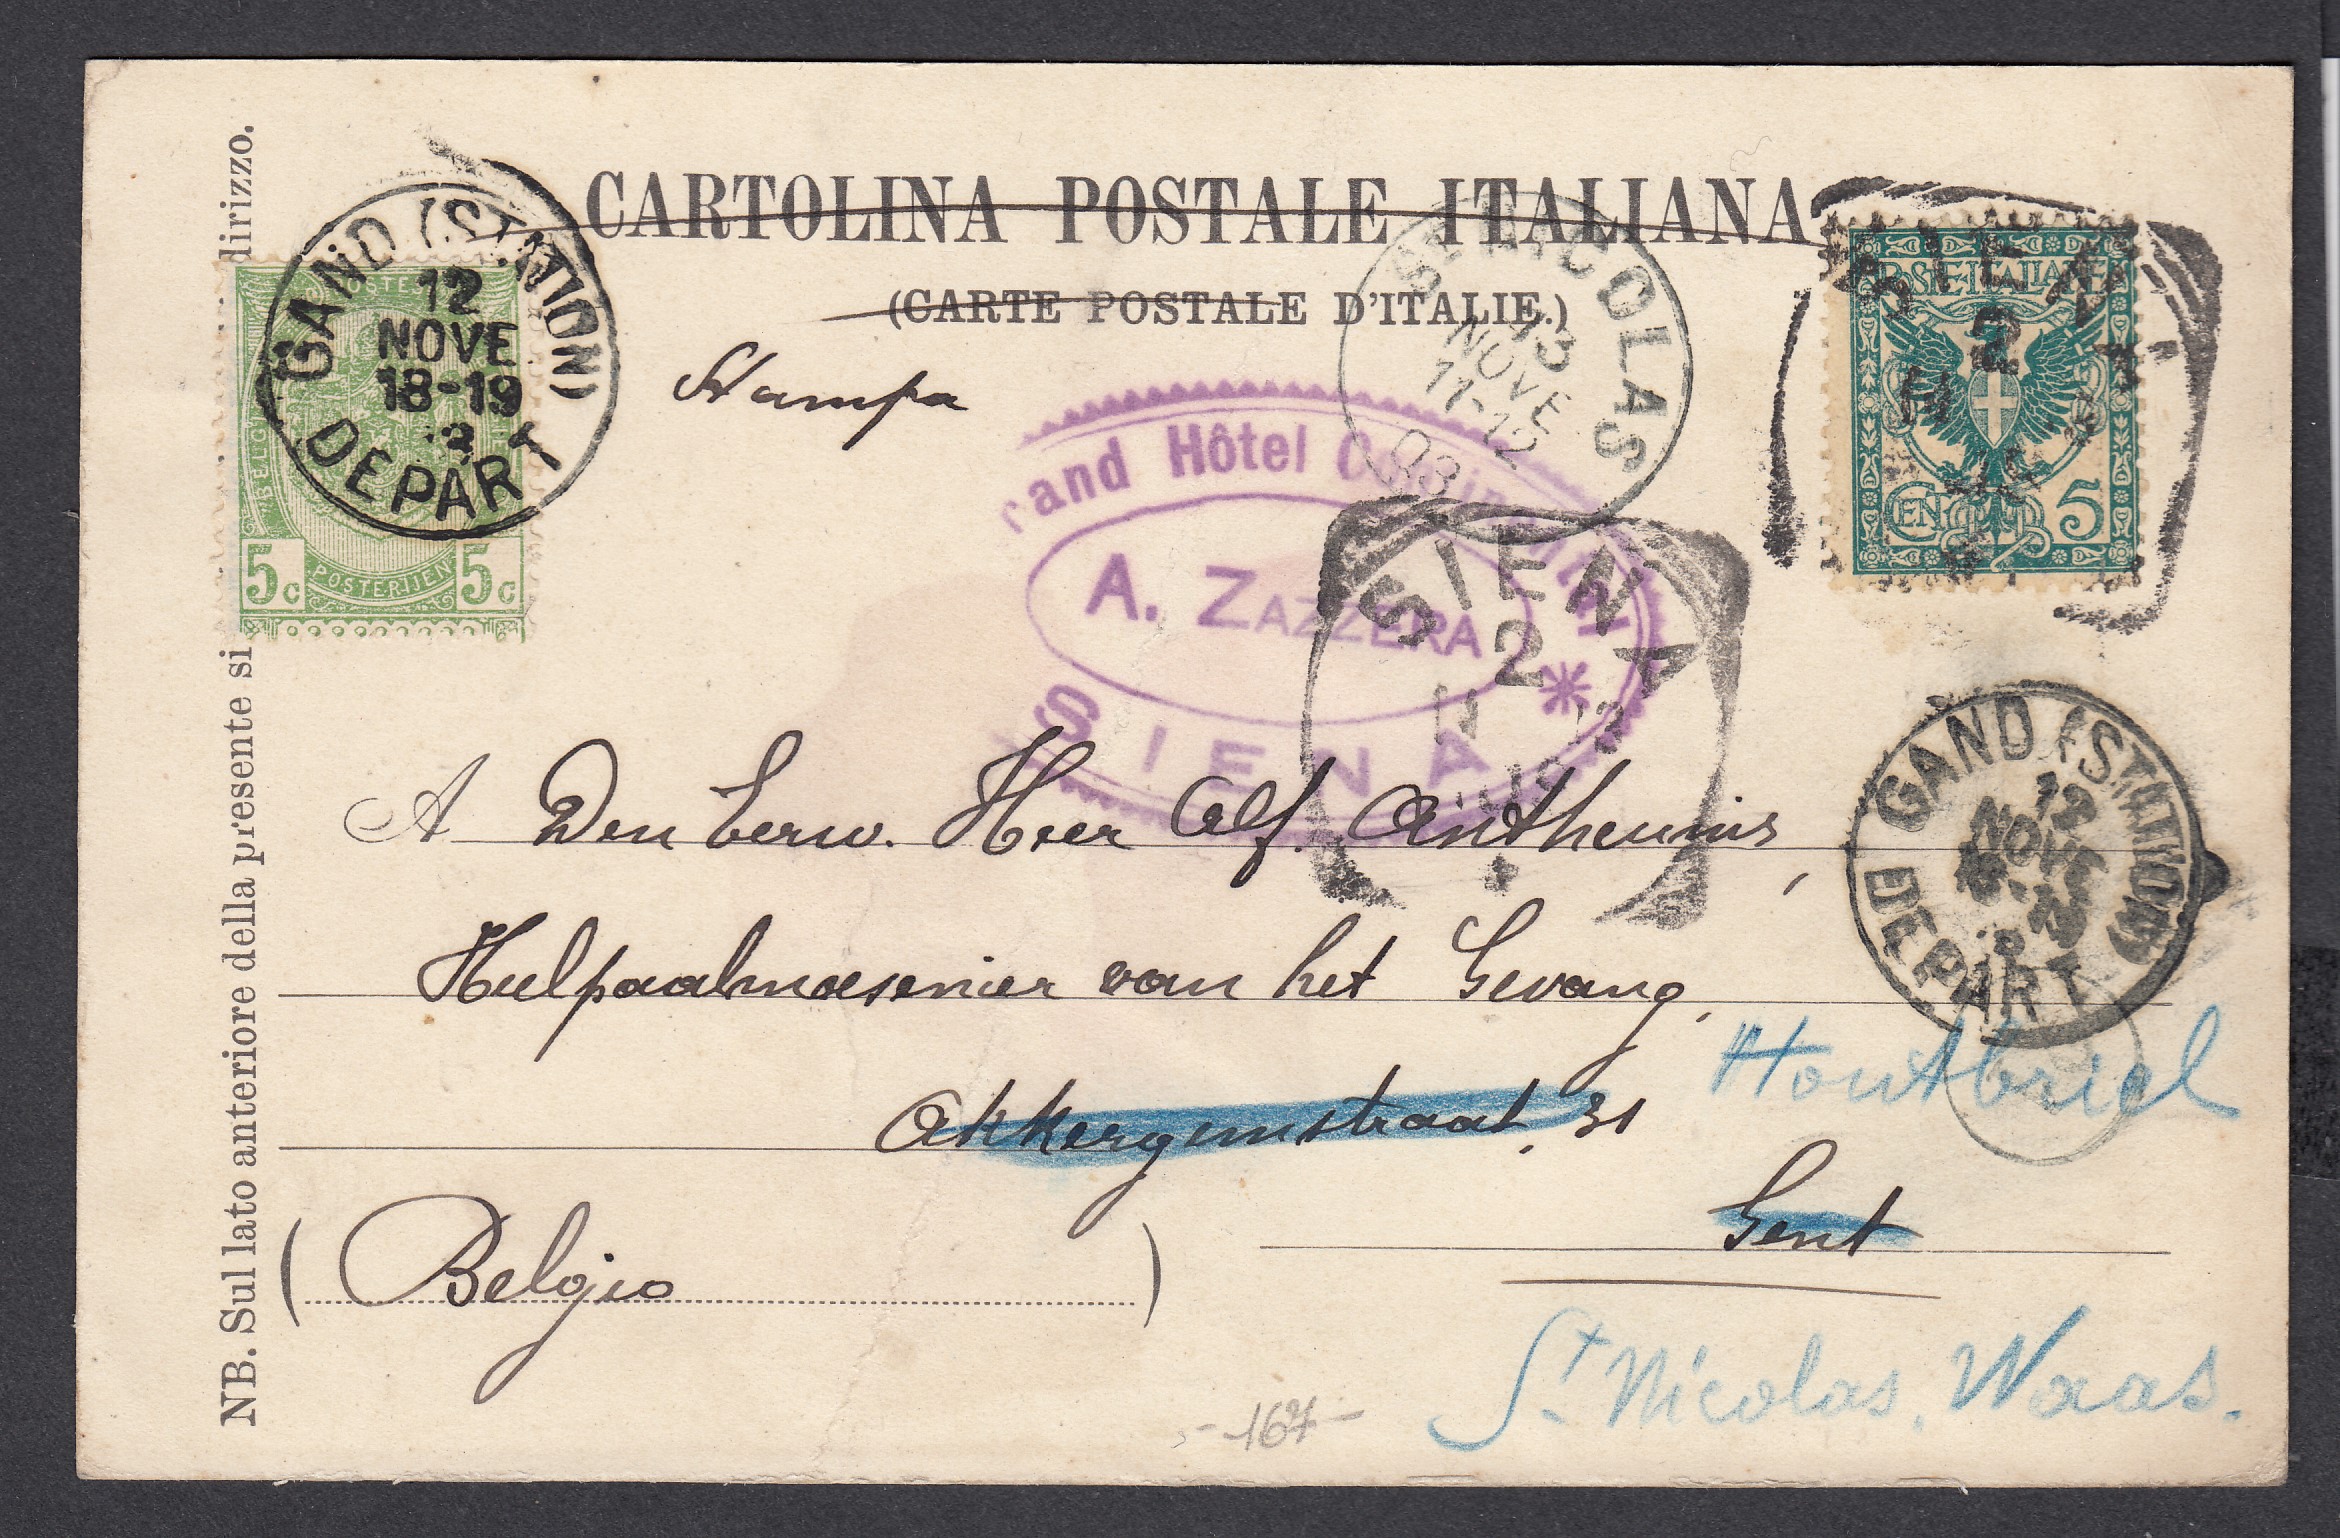 CARTOLINA POSTALE ITALIANA
(CARTE POSTALE D'ITALIE.)
NB. Sul lato anteriore della presente si dirizzo.
GAND (STATION)
12
NOVE
18-19
3
DEPART
POSTE
BELG
5c POSTERIJEN 5c
Stampa
ST NICOLAS
13
NOVE
11-12
03
POSTE ITALIANE
CENT 5
SIENA
2
11
rand Hôtel
A. ZAZZERA
SIENA
SIENA
2
11
GAND (STATION)
12
NOVE
DEPART
A Den Eerw. Heer Alf. Antheunis,
Hulpaalmoesenier van het Gevang.
Akkergemstraat, 31
Houtbriel
Gent
(Belgio)
St Nicolas, Waas.
-167-